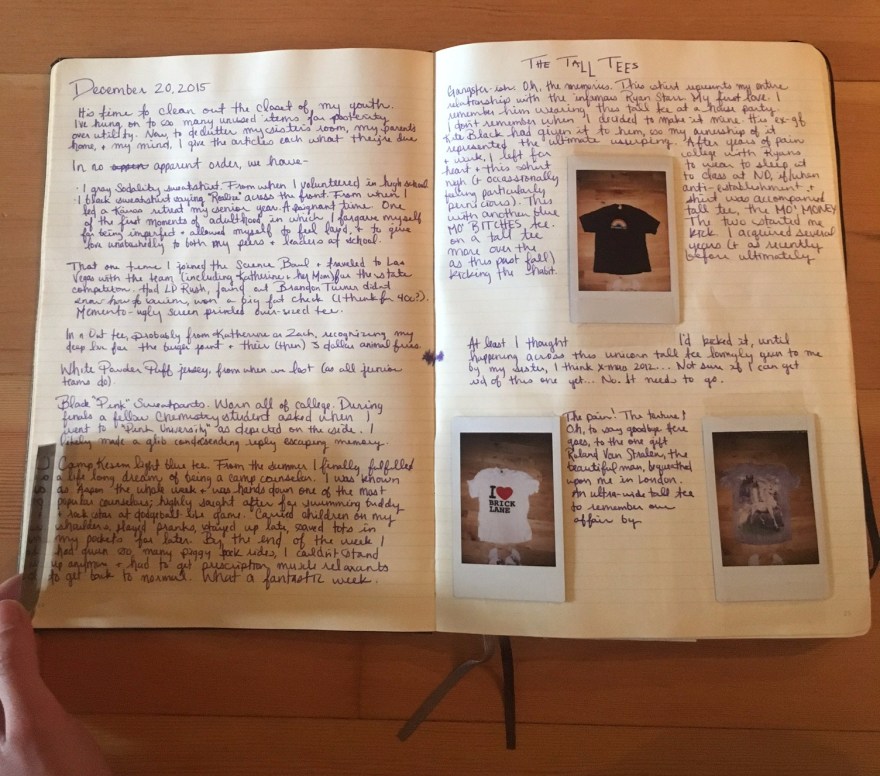 December 20, 2015
It's time to clean out the closet of my youth.
I've hung on to so many unused items for posterity
over utility. Now, to declutter my sister's room, my parents'
home, + my mind, I give the articles each what they're due
In no apparent order, we have-
· 1 gray Sodality sweatshirt. From when I volunteered in high school.
· 1 black sweatshirt saying "Realize" across the front. From when I
led a Kairos retreat my senior year. A poignant time. One
of the first moments of adulthood in which I forgave myself
for being imperfect + allowed myself to feel loved, + to give
love unabashedly to both my peers + leaders at school.
That one time I joined the Science Bowl + traveled to Las
Vegas with the team (including Katherine + her Mom) for the state
competition. Had LD Rush, Brandon Turner didn't
know how to won a big fat check (I think for 400?).
Memento-ugly screen printed over-sized tee.
In n Out tee, probably from Katherine or Zach, recognizing my
deep luv for the burger joint + their (then) 3 dollar animal fries.
White Powder Puff jersey, from when we lost (as all junior
teams do).
Black "Pink" Sweatpants. Worn all of college. During
finals a fellow Chemistry student asked when I
went to "Pink University" as depicted on the side. I
likely made a glib condescending reply escaping memory.
Camp Kesem light blue tee. From the summer I finally fulfilled
a life long dream of being a camp counselor. I was known
as Aspen the whole week + was hands down one of the most
popular counselors; highly sought after for swimming buddy
+ rock star at dodgeball like game. Carried children on my
shoulders, played pranks, stayed up late, saved tots in
my pockets for later. By the end of the week I
had given so many piggy back rides, I couldn't stand
up anymore + had to get prescription muscle relaxants
to get back to normal. What a fantastic week.
THE TALL TEES
Gangster-ish. Oh, the memories. This shirt represents my entire
relationship with the infamous Ryan Starr. My first love. I
remember him wearing this tall tee at a house party.
I don't remember when I decided to make it mine. His ex-gf
Kate Black had given it to them, so my ownership of it
represented the ultimate usurping. After years of pain
+ work, I left for college with Ryan's
heart + this shirt to wear to sleep at
night (+ occasionally to class at ND, if/when
feeling particularly anti-establishment +
pernicious). This shirt was accompanied
with another blue tall tee, the MO' MONEY
MO' BITCHES tee. The two started me
on a tall tee kick. I acquired several
more over the years (+ as recently
as this past fall) before ultimately
kicking the habit.
At least I thought I'd kicked it, until
happening across this unicorn tall tee lovingly given to me
by my sister, I think x-mas 2012... Not sure if I can get
rid of this one yet... No. It needs to go.
The pain! The torture!
Oh, to say goodbye. Here
goes, to the one gift
Roland Van Straten, the
beautiful man, bequeathed
upon me in London.
An ultra-wide tall tee
to remember our
affair by
I ♥
BRICK
LANE